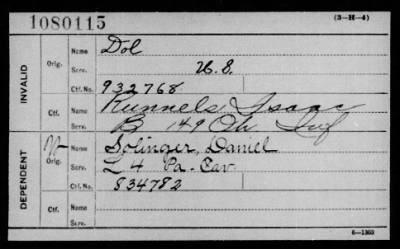 1080115
(3-H-4)
INVALID
Orig.
Name Dol
Serv. U.S.
Ctf. No. 932768
Ctf.
Name Runnels, Isaac
Serv. B 149 Oh. Inf
DEPENDENT
Orig.
Name Solinger, Daniel
Serv. L 4 Pa. Cav.
Ctf. No. 834782
Ctf.
Name
Serv.
6-1303